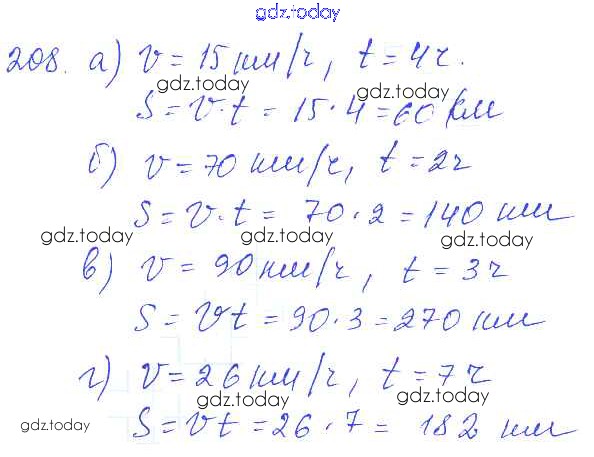 gdz.today
208. а) v = 15 км/ч, t = 4ч.
gdz.today gdz.today
S = v·t = 15·4 = 60 км
б) v = 70 км/ч, t = 2ч
S = v·t = 70·2 = 140 км
gdz.today gdz.today gdz.today
в) v = 90 км/ч, t = 3ч
S = vt = 90·3 = 270 км
г) v = 26 км/ч, t = 7ч
gdz.today gdz.today
S = vt = 26·7 = 182 км
gdz.today gdz.today